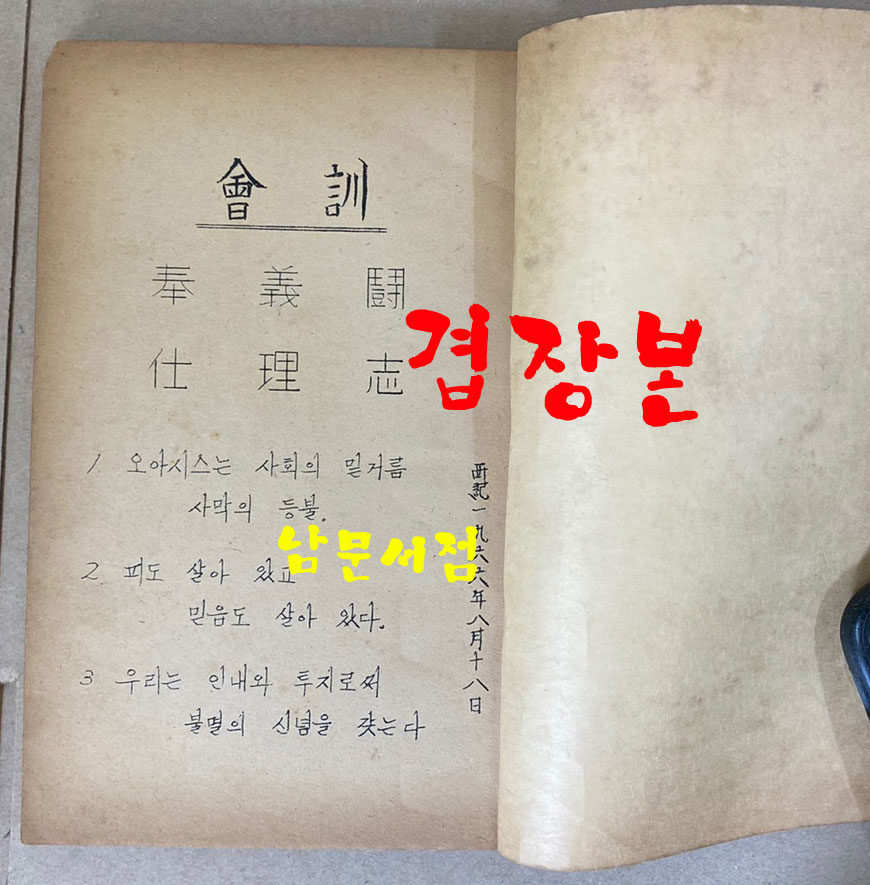 會 訓
奉 義 鬪
仕 理 志
1. 오아시스는 사회의 밑거름
사막의 등불.
2. 피도 살아 있고
믿음도 살아 있다.
3 우리는 인내와 투지로써
불멸의 신념을 갖는다
西紀一九六六年八月十八日
겹장본
남문서점